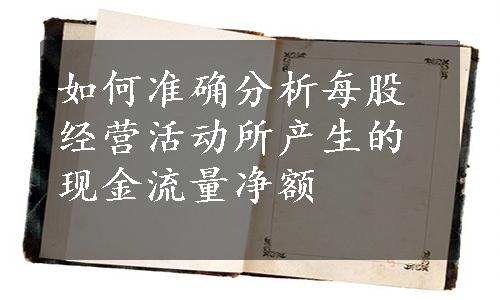 如何准确分析每股
经营活动所产生的
现金流量净额